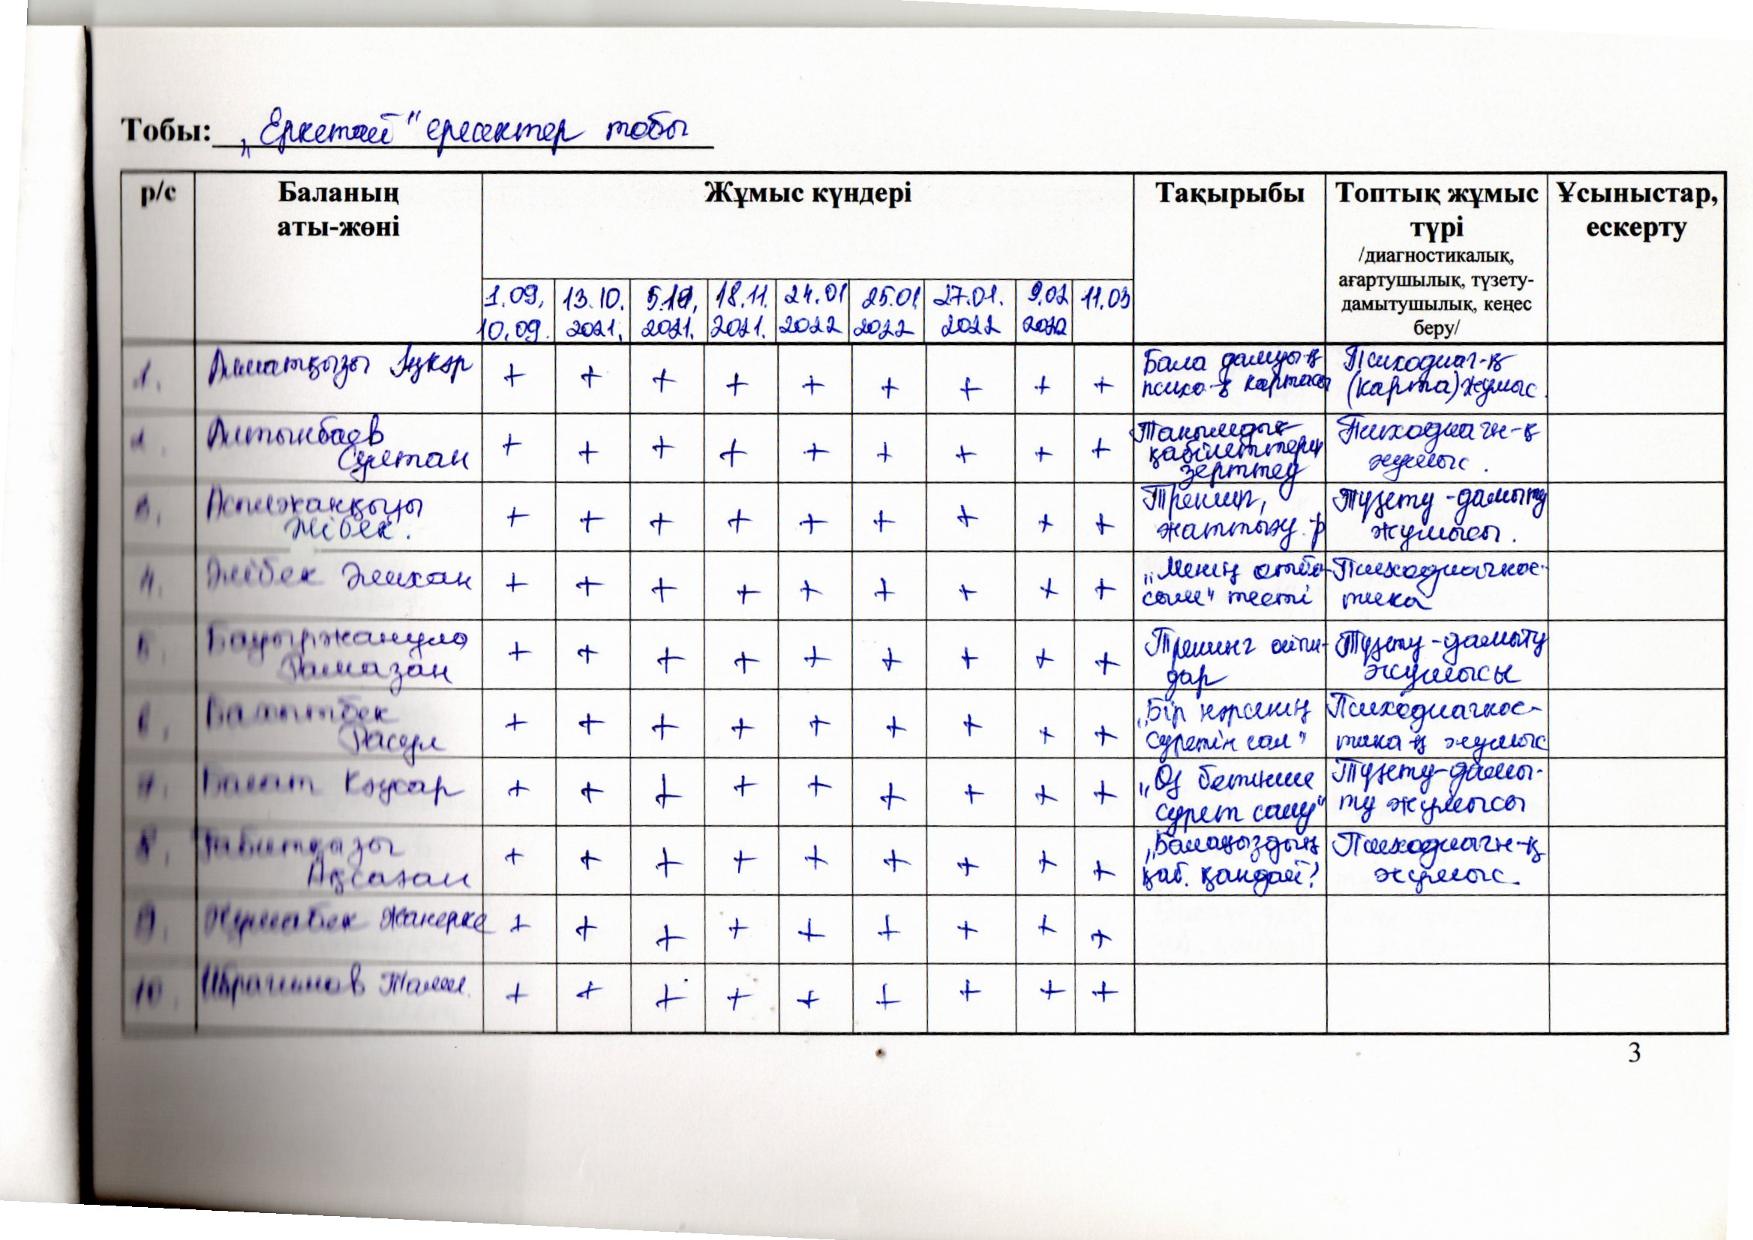 Тобы: „Еркетай" ересектер тобы
р/с Баланың аты-жөні Жұмыс күндері Тақырыбы Топтық жұмыс түрі /диагностикалық, ағартушылық, түзету-дамытушылық, кеңес беру/ Ұсыныстар, ескерту
1.09, 10.09. 13.10. 2021. 5.10, 2021. 18.11. 2021. 24.01 2022 25.01 2022 27.01. 2022 9.02 2022 11.03
1. + + + + + + + + + Бала дамуы-ң психо-қ картасы Психодиаг-қ (карта) жұмыс.
2. Алтынбаев Сұлтан + + + + + + + + + Танымдық қабілеттерін зерттеу Психодиагн-қ жұмыс.
3. Жібек. + + + + + + + + + Тренинг, жаттығу-р Түзету-дамыту жұмысы.
4. Әлібек Әлихан + + + + + + + + + „Менің отба-сым" тесті Психодиагнос-тика
5. Бауыржанұлы Рамазан + + + + + + + + + Тренинг ойын-дар Түзету-дамыту жұмысы
6. Бахытбек Расул + + + + + + + + + „Бір нәрсенің суретін сал" Психодиагнос-тика-қ жұмыс
7. Болат Кәусар + + + + + + + + + „Өз бетінше сурет салу" Түзету-дамы-ту жұмысы
8. Ақсазан + + + + + + + + + „Балаңыздың қаб. қандай? Психодиагн-қ жұмыс.
9. Жұмабек Жанерке + + + + + + + + +
10. Ибрагимов + + + + + + + + +
3